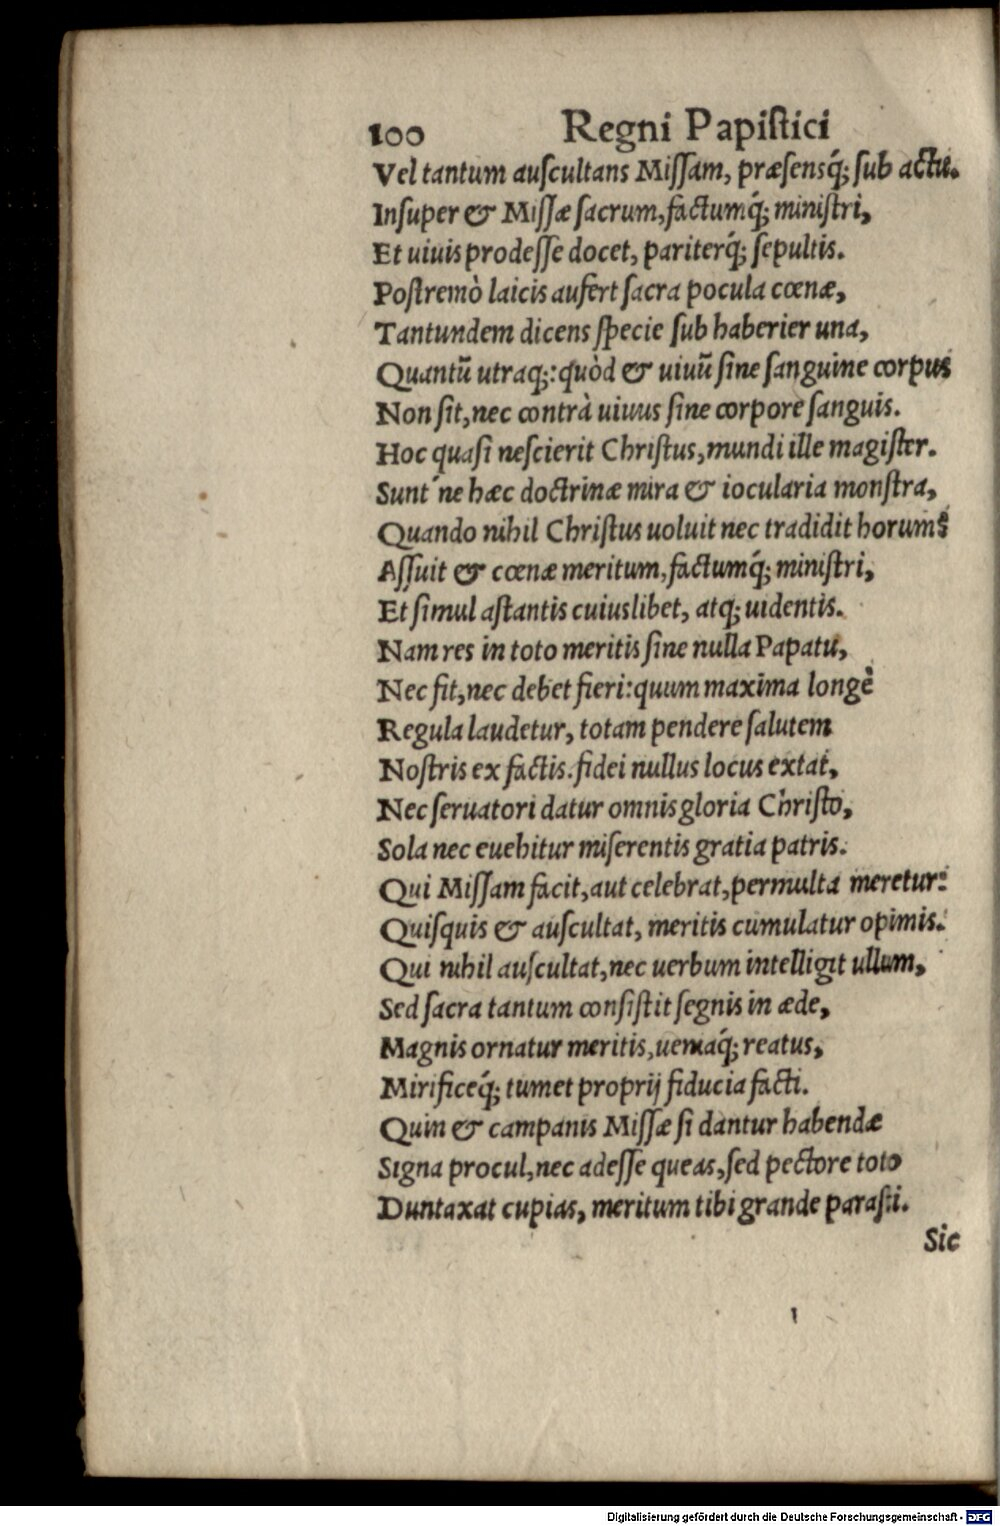 100 Regni Papiſtici
Vel tantum auſcultans Miſſam, præſensq́; ſub actu.
Inſuper & Miſſæ ſacrum, factumq́; miniſtri,
Et uiuis prodeſſe docet, pariterq́; ſepultis.
Poſtremò laicis aufert ſacra pocula cœnæ,
Tantundem dicens ſpecie ſub haberier una,
Quantũ utraq;: quòd & uiuũ ſine ſanguine corpus
Non ſit, nec contrà uiuus ſine corpore ſanguis.
Hoc quaſi neſcierit Chriſtus, mundi ille magiſter.
Sunt´ne hæc doctrinæ mira & iocularia monſtra,
Quando nihil Chriſtus uoluit nec tradidit horum?
Aſſuit & cœnæ meritum, factumq́; miniſtri,
Et ſimul aſtantis cuiuslibet, atq; uidentis.
Nam res in toto meritis ſine nulla Papatu,
Nec fit, nec debet fieri: quum maxima longè
Regula laudetur, totam pendere ſalutem
Noſtris ex factis. fidei nullus locus extat,
Nec ſeruatori datur omnis gloria Chriſto,
Sola nec euehitur miſerentis gratia patris.
Qui Miſſam facit, aut celebrat, permulta meretur:
Quiſquis & auſcultat, meritis cumulatur opimis.
Qui nihil auſcultat, nec uerbum intelligit ullum,
Sed ſacra tantum conſiſtit ſegnis in æde,
Magnis ornatur meritis, ueniaq́; reatus,
Mirificeq́; tumet proprij fiducia facti.
Quin & campanis Miſſæ ſi dantur habendæ
Signa procul, nec adeſſe queas, ſed pectore toto
Duntaxat cupias, meritum tibi grande paraſti.
Sic
Digitalisierung gefördert durch die Deutsche Forschungsgemeinschaft - DFG